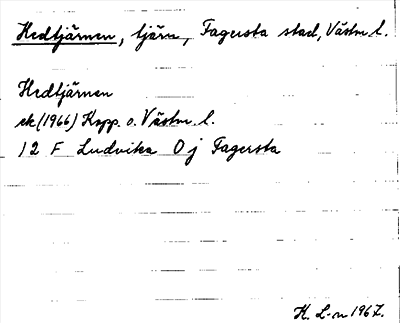 Hedtjärnen, tjärn, Fagersta stad, Västm. l.
Hedtjärnen
ek (1966) Kopp. o. Västm. l.
12 F Ludvika 0 j Fagersta
K. L-m 1967.